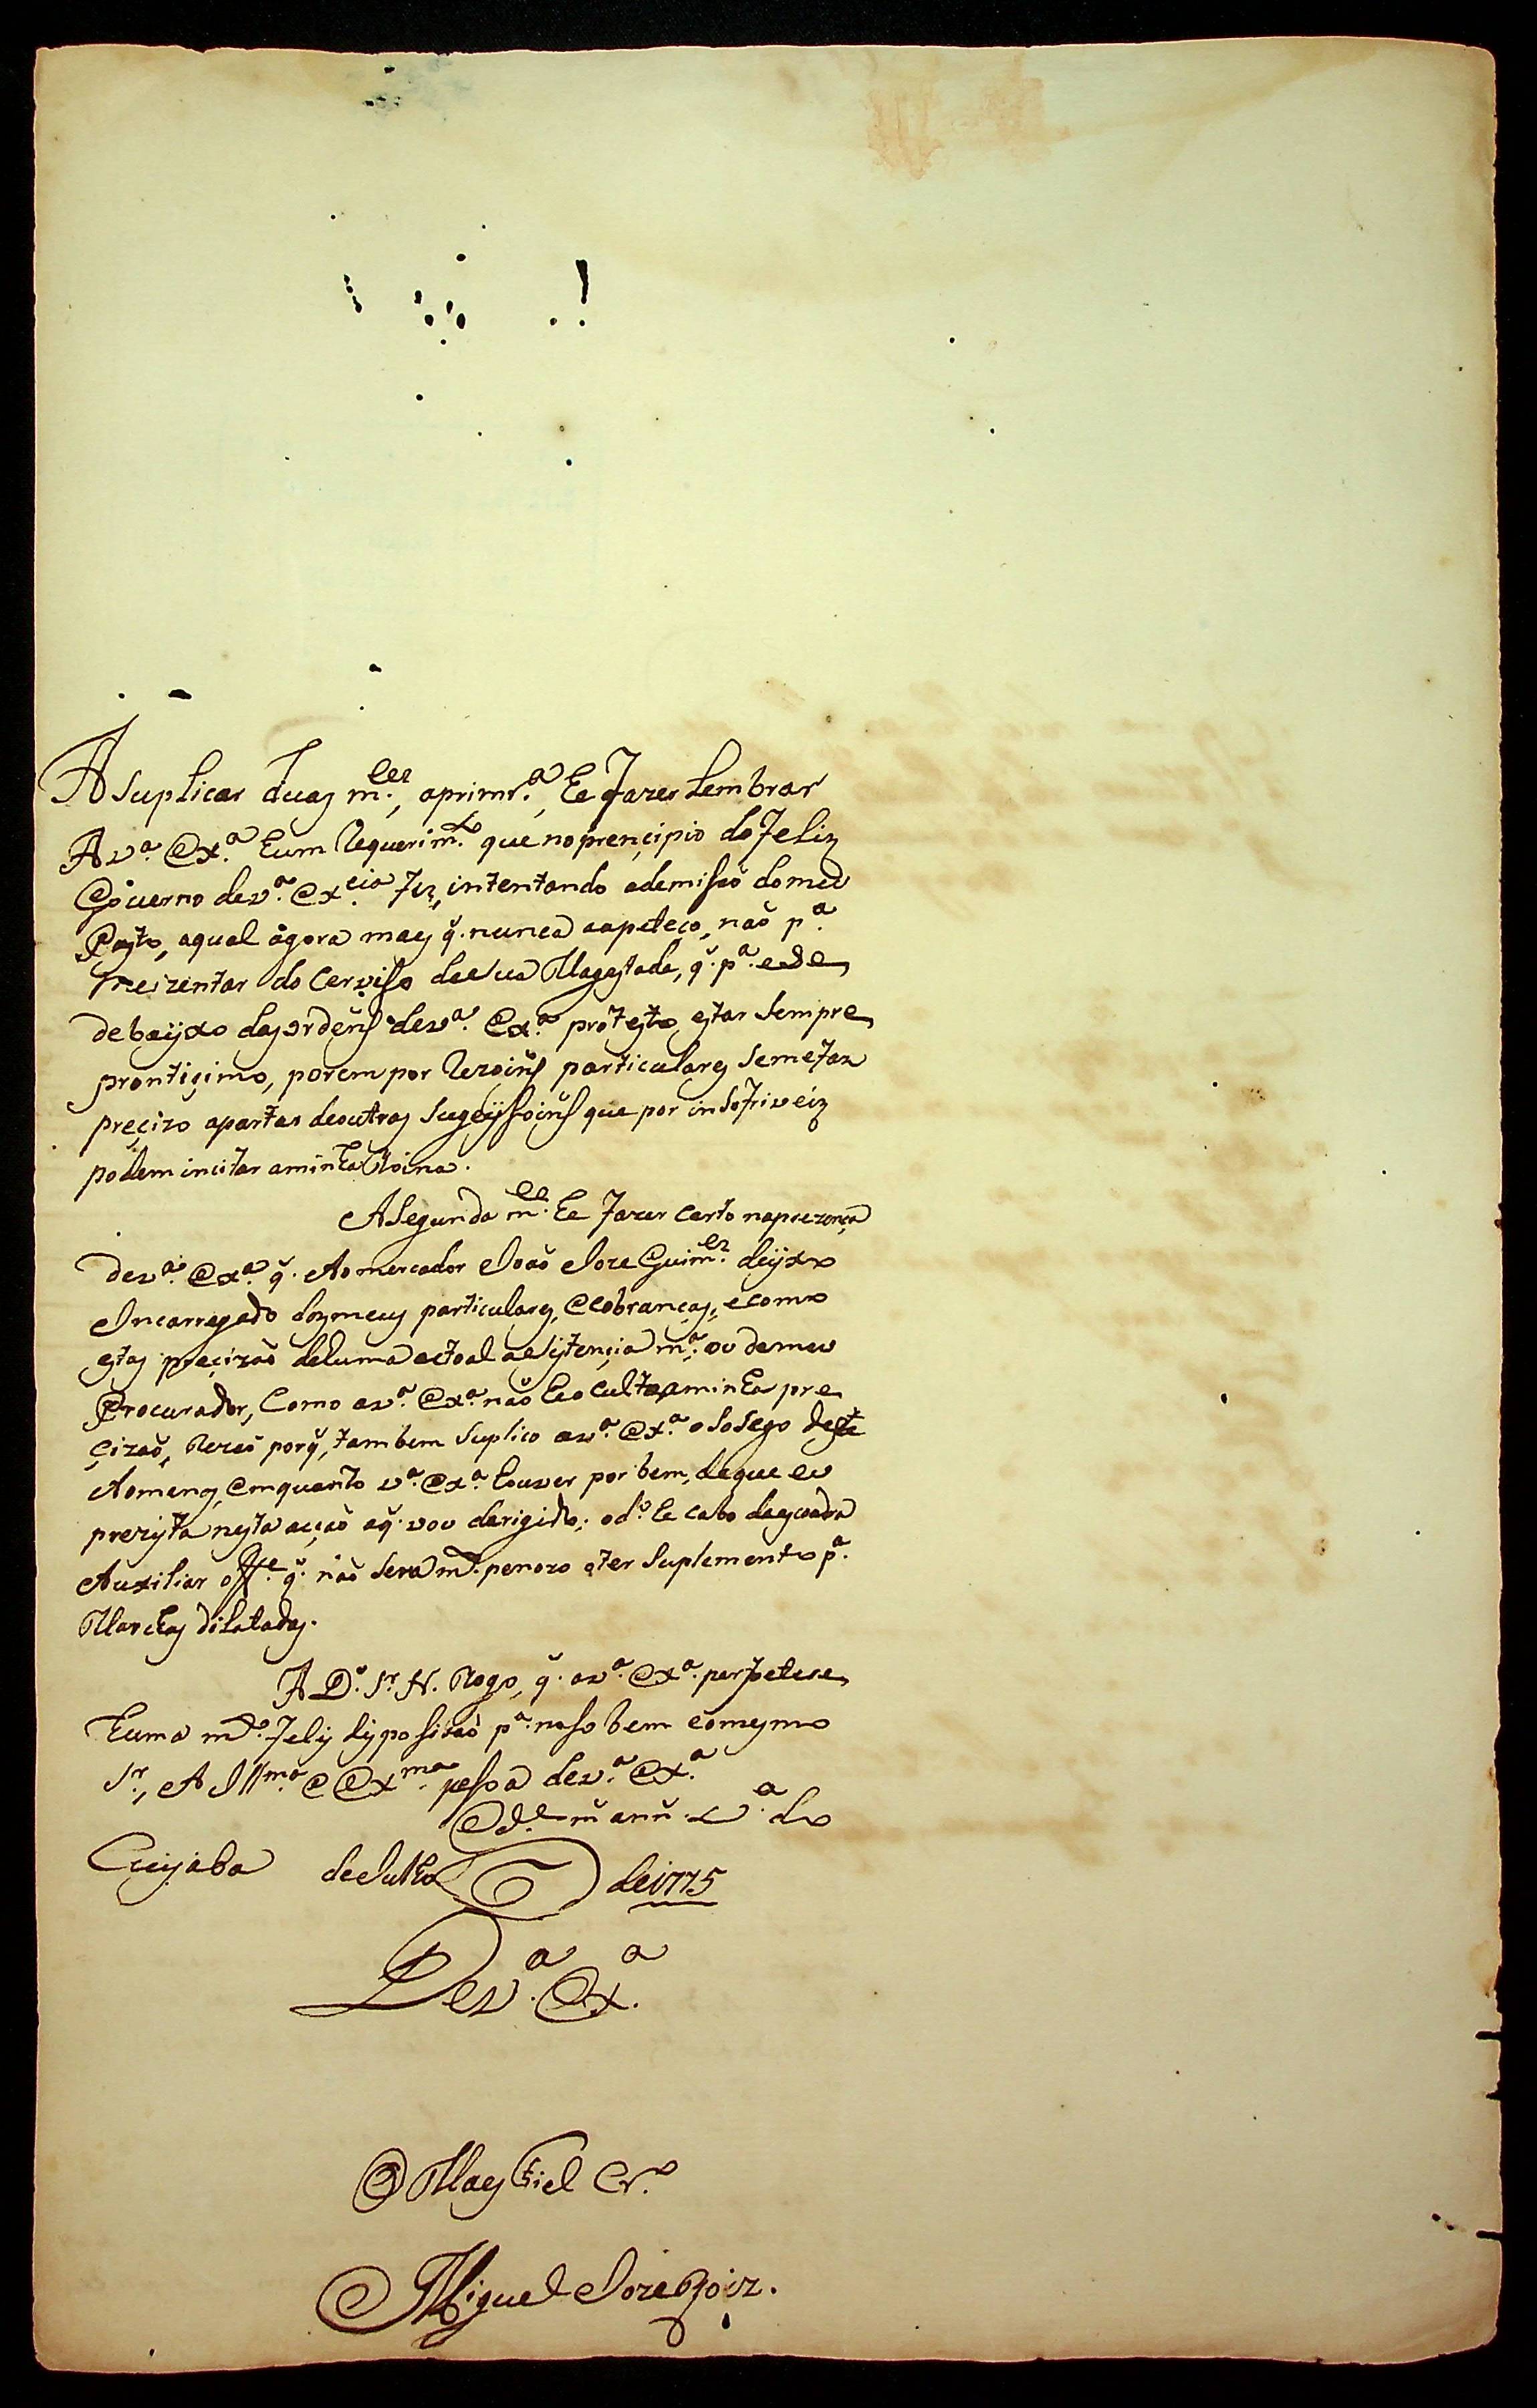 A suplicar duas m.ces, a primr.a, he fazer lembrar
A v.a Ex.a hum Requerim.to que no prencipio do Feliz
Governo de v.a Ex.cia Fiz, intentando ademisaõ do meu
Posto, aqual agora mays q̃. nunca aapeteço, naõ p.a
me izentar do Cerviso de sua Magestade, q̃. p.a ede
debayxo das ordeñs de v.a Ex.a protesto estar sempre
prontiçimo, porem por Rezoiñs particulares semefaz
precizo apartar deoutras sugeyssoiñs que por insofriveiz
podem incitar aminha Roina.
A segunda m.ce he fazer certo naprezença
de v.a Ex.a q̃. Ao mercador Joaõ Joze Guim.es deyxo
Incarregado dosmeus particulares, Ecobranças, ecomo
estas precizaõ dehuma actoal acistençia m.a ou demeu
Procurador, Como a v.a Ex.a naõ heoculto aminha pre
çizaõ, Rezaõ porq̃, tambem suplico a v.a Ex.a osoSego deste
Aomenos, Emquanto v.a Ex.a houver por bem, deque eu
prezista nesta acçaõ aq̃. vou derigido; od.o he cabo daesquadra
Auxiliar off.e q̃. naõ sera m.to penozo oter suplemento p.a
Marchas dilatadas.
A D.s Sr. N. Rogo, q̃. a v.a Ex.a perpetue
huma m.to Felis disposisaõ p.a noso bem comesmo
Sr., A Ill.ma E Ex.ma pesoa de v.a Ex.a
Cuyaba de Julho de 1775
De v.a Ex.a
O Mays Fiel Cr.o
Miguel Joze Roiz.